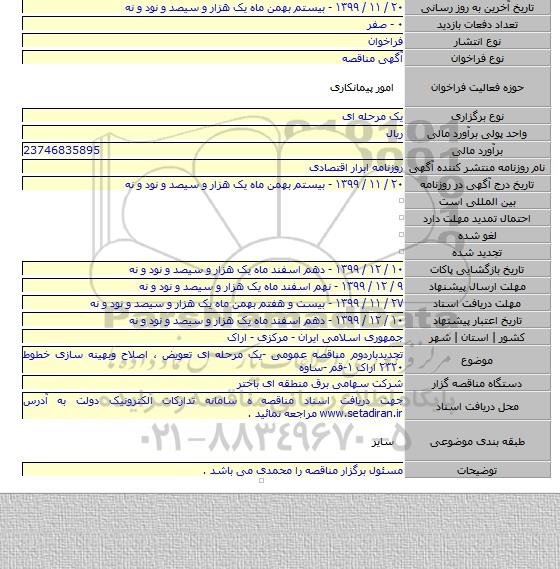 تاریخ آخرین به روز رسانی ۲۰ / ۱۱ / ۱۳۹۹ - بیستم بهمن ماه یک هزار و سیصد و نود و نه
تعداد دفعات بازدید ۰ - صفر
نوع انتشار فراخوان
نوع فراخوان آگهی مناقصه
حوزه فعالیت فراخوان امور پیمانکاری
نوع برگزاری یک مرحله ای
واحد پولی برآورد مالی ریال
برآورد مالی 23746835895
نام روزنامه منتشر کننده آگهی روزنامه ابرار اقتصادی
تاریخ درج آگهی در روزنامه ۲۰ / ۱۱ / ۱۳۹۹ - بیستم بهمن ماه یک هزار و سیصد و نود و نه
بین المللی است
احتمال تمدید مهلت دارد
لغو شده
تجدید شده
تاریخ بازگشایی پاکات ۱۰ / ۱۲ / ۱۳۹۹ - دهم اسفند ماه یک هزار و سیصد و نود و نه
مهلت ارسال پیشنهاد ۹ / ۱۲ / ۱۳۹۹ - نهم اسفند ماه یک هزار و سیصد و نود و نه
مهلت دریافت اسناد ۲۷ / ۱۱ / ۱۳۹۹ - بیست و هفتم بهمن ماه یک هزار و سیصد و نود و نه
تاریخ اعتبار پیشنهاد ۱۰ / ۱۲ / ۱۳۹۹ - دهم اسفند ماه یک هزار و سیصد و نود و نه
کشور | استان | شهر جمهوری اسلامی ایران - مرکزی - اراک
موضوع تجدیدباردوم مناقصه عمومی -یک مرحله ای تعویض ، اصلاح وبهینه سازی خطوط
۲۳۰ اراک ۱-قم -ساوه
دستگاه مناقصه گزار شرکت سهامی برق منطقه ای باختر
محل دریافت اسناد جهت دریافت اسناد مناقصه ه سامانه تدارکات الکترونیک دولت به آدرس
www.setadiran.ir مراجعه نمائید .
طبقه بندی موضوعی سایر
۰۲۱-۸۸۳۴۹۶۷۰-۵
توضیحات مسئول برگزار مناقصه را محمدی می باشد .